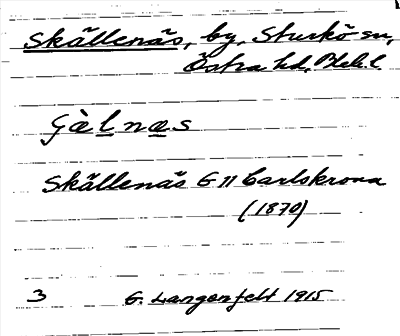 Skällenäs, by, Sturkö sn,
Östra hd, Blek.l
Skällenäs G 11 Carlskrona
(1870)
3 G. Langenfelt 1915